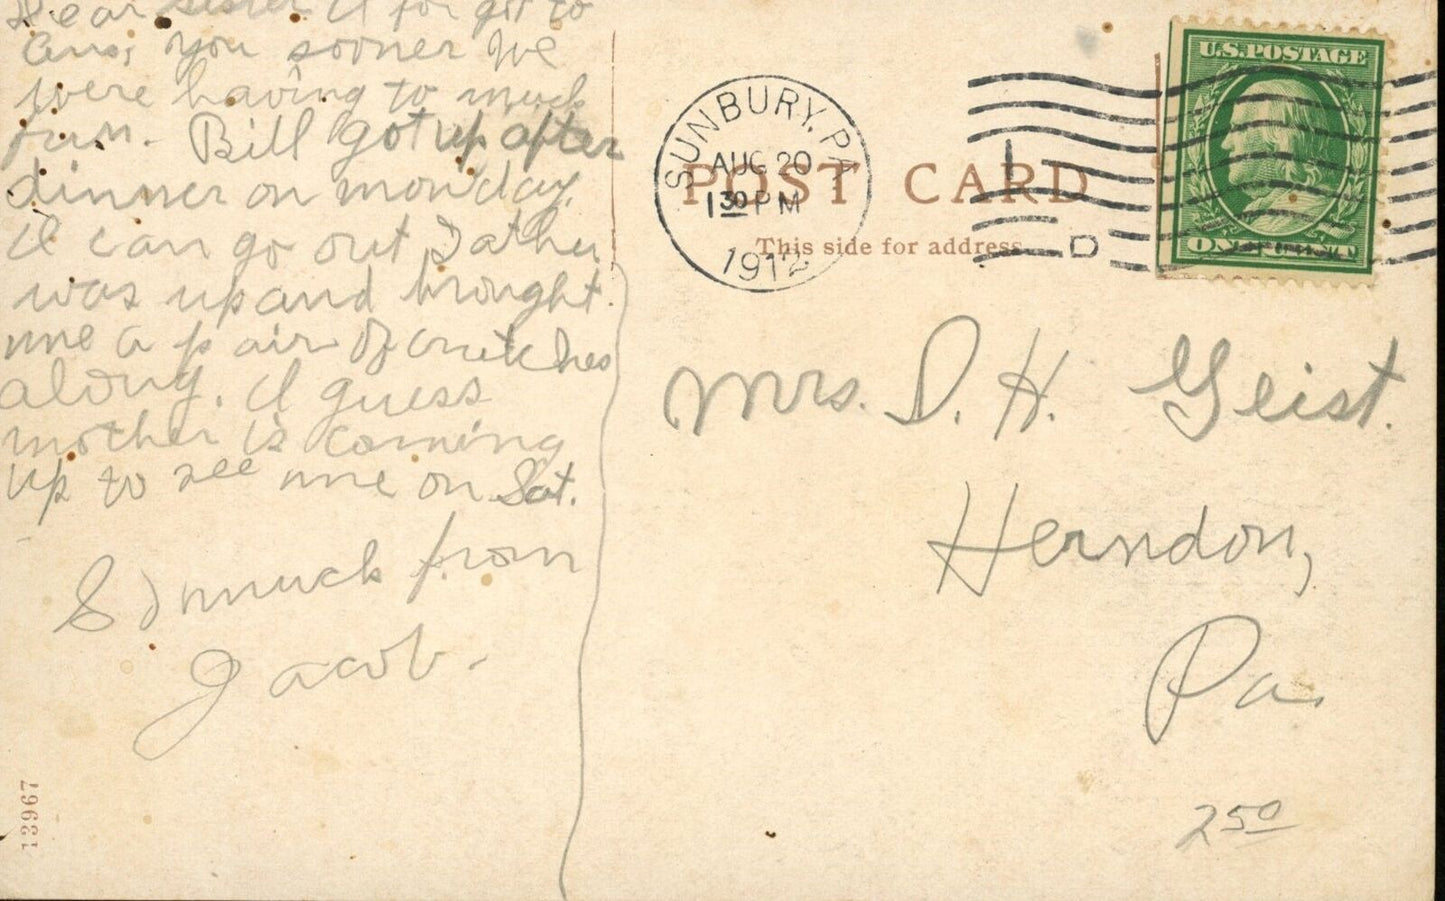 Dear Sister I for got to
Ans, you sooner We
were having to much
fun. Bill got up after
dinner on monday.
I can go out Father
was up and brought
me a pair of crutches
along. I guess
mother is coming
up to see me on Sat.
muck from
Jacob.
13967
SUNBURY, PA.
AUG 20
1 30 PM
1912
POST CARD
This side for address
1
D
U.S. POSTAGE
ONE CENT
Mrs. D. H. Geist.
Herndon,
Pa.
2 50